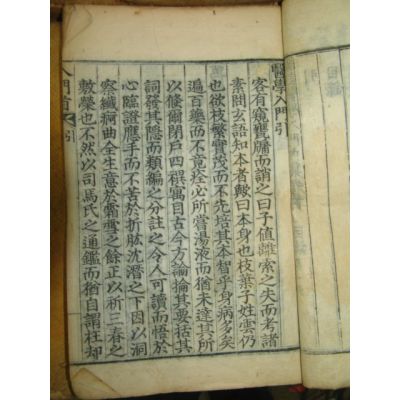 醫學入門引
客有窺甕牖而謂之曰子值離索之失而考諸
素問玄語知本者歟曰本身也枝葉子姓雲仍
也欲枝繁實茂而不先培其本智乎身病多矣
遍百藥而不竟必所嘗湯液而猶未達其所
以倏爾閉戶四禩寓目古今方論掄其要括其
詞發其隱而類編之分註之令人可讀而悟於
心臨證應手而不苦於折肱沈潛之下因以洞
察纖痾曲全生意於霜雪之餘正以祈三春之
敷榮也不然以司馬氏之通鑑而猶自謂枉却
入門首 引